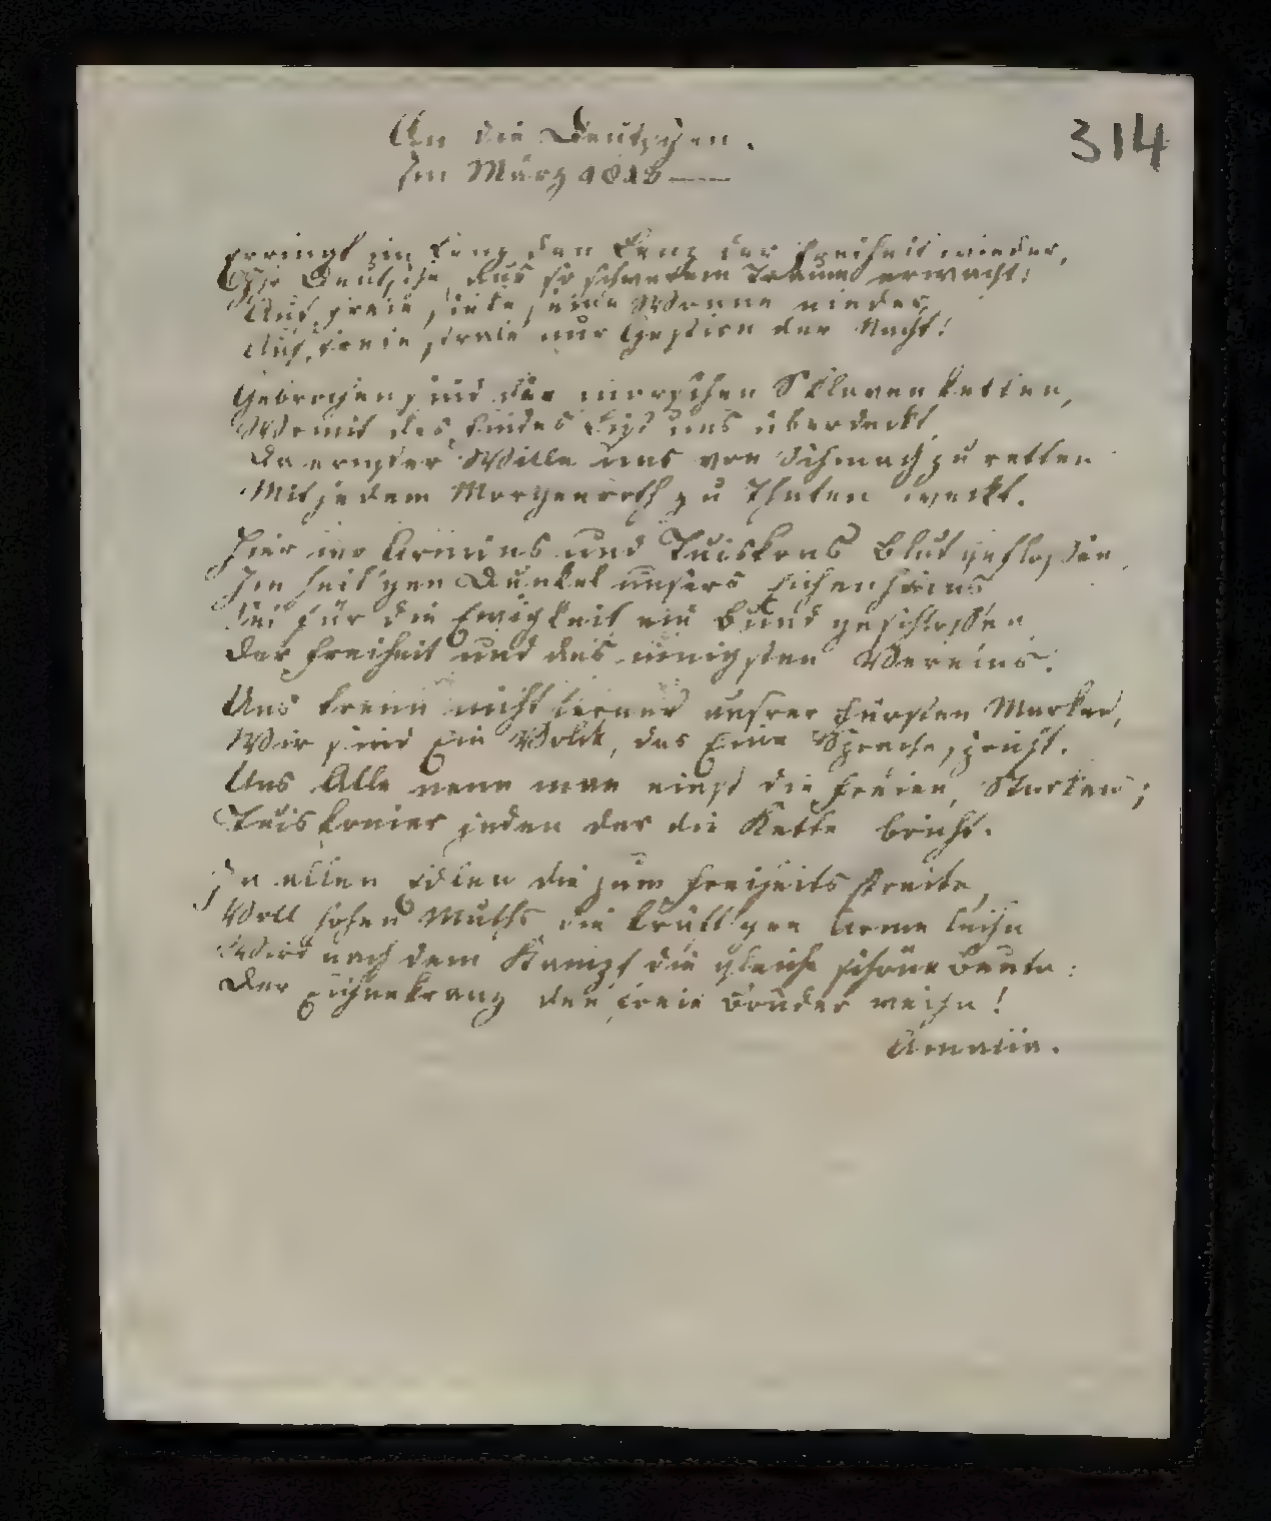 An die Deutschen.
Im März 1818
314
Erringt im Lenz den Lenz der Freiheit wieder,
Ihr Deutsche, aus so schwerem Traum erwacht!
Auf Freie sinke seine Wonne nieder,
Auf Freie strale nur Gestirn der Nacht!
Gebrochen sind die morschen Sklavenketten,
Womit des Feindes List uns überdeckt
Da ernster Wille uns von Schmach zu retten
Mit jedem Morgenroth zu Thaten weckt.
Hier wo Armins und Tuiskons Blut geflossen,
Im heil'gen Dunkel unsers Eichenhains
Sei für die Ewigkeit ein Bund geschlossen
Der Freiheit und des innigsten Vereins.
Uns trenn' nicht ferner unsrer Fürsten Marken,
Wir sind Ein Volk, das Eine Sprache spricht.
Uns Alle nenn man einst die Freien, Starken;
jeden der die Kette bricht.
In allen die zum Freiheits streite,
Voll hohen Muths die kräft'gen Arme leihn
Wird nach dem Kampf die gleiche schöne Beute:
Der Eichenkranz den freie Brüder weihn!
Amalia.